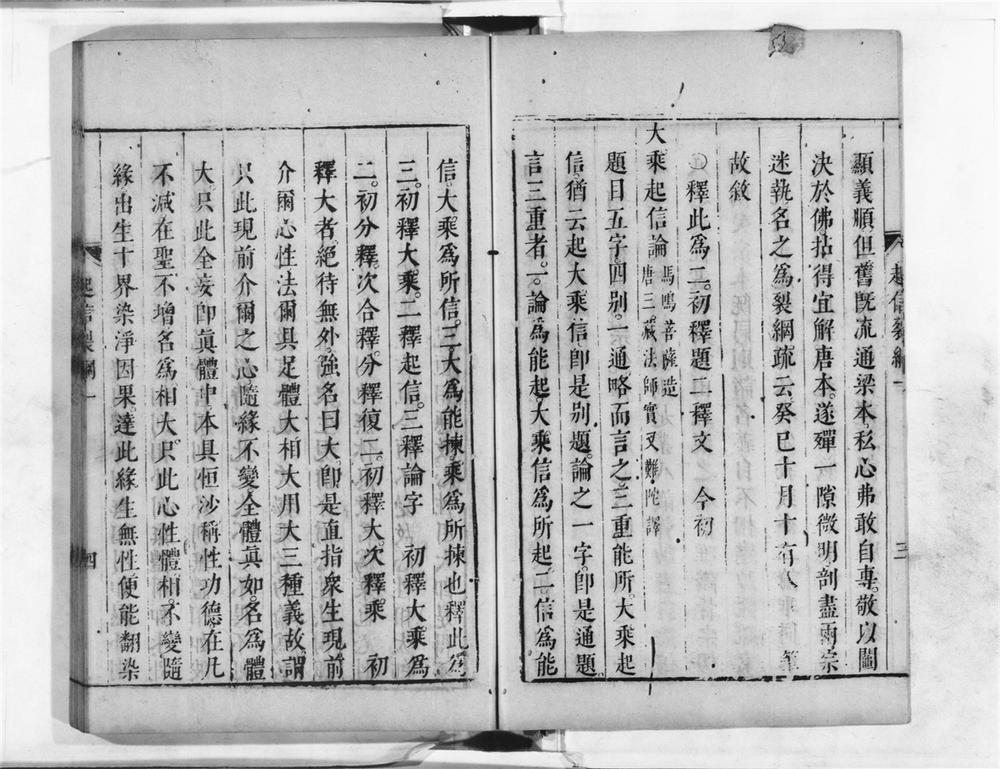 顯義順但舊旣流通梁本私心弗敢自專敬以鬮
決於佛拈得宜解唐本遂殫一隙微明剖盡兩宗
迷執名之爲裂綱疏云癸巳十月十有
筆
故敘
○釋此爲二初釋題二釋文　今初
大乘起信論 馬鳴菩薩造
唐三藏法師實叉難陀譯
題目五字四別一通略而言之三重能所大乘起
信猶云起大乘信卽是别題論之一字卽是通題
言三重者一論爲能起大乘信爲所起二信爲能
起信裂綱一
三
信大乘爲所信三大爲能揀乘爲所揀也釋此爲
三初釋大乘二釋起信三釋論字　初釋大乘爲
二初分釋次合釋分釋復二初釋大次釋乘　初
釋大者絕待無外強名曰大卽是直指衆生現前
介爾心性法爾具足體大相大用大三種義故謂
只此現前介爾之心隨緣不變全體眞如名爲體
大只此全妄卽眞體中本具恒沙稱性功德在凡
不減在聖不增名爲相大只此心性體相不變隨
緣出生十界染淨因果達此緣生無性便能翻染
起信裂綱一
四